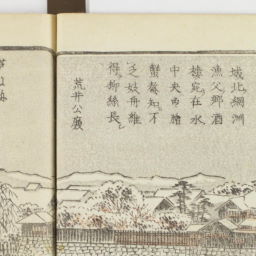 城北網洲
漁父鄉酒
樓宛在水
中央雨膾
蟹螯知不
乏妓舟維
得柳絲長
荒井公廉